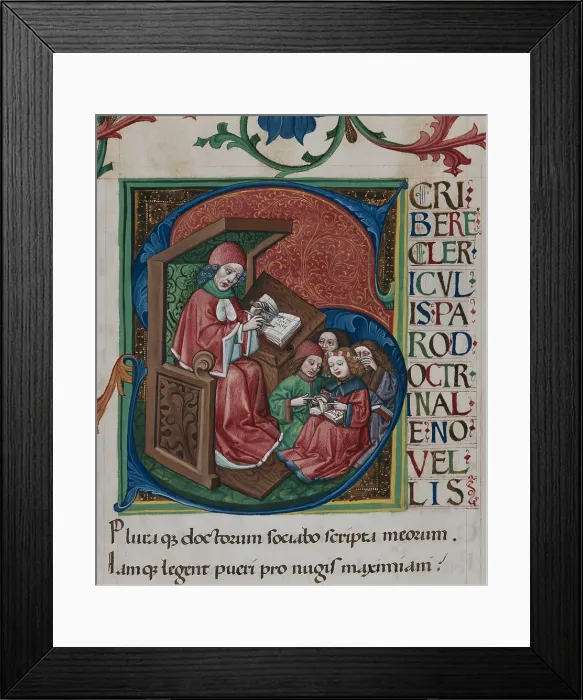 S
CRI
BERE
CLER
ICVL
IS·PA
ROD·
OCTR
INAL
E·NO
VEL
LIS
Pluraqꝫ doctorum sociabo scripta meorum .
Iamqꝫ legent pueri pro nugis maximiani :